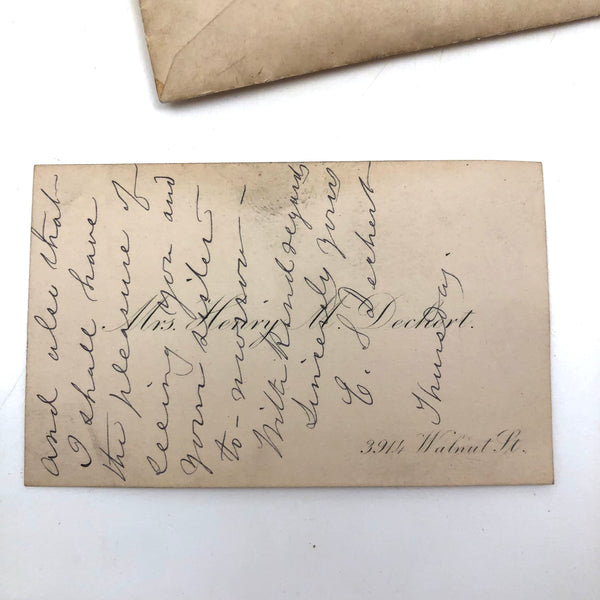 and also that
I shall have
the pleasure of
seeing you and
your sister
to-morrow —
With kind regards
Sincerely yours
E. S. Dechert
Thursday
Mrs. Henry M. Dechert.
3914 Walnut St.